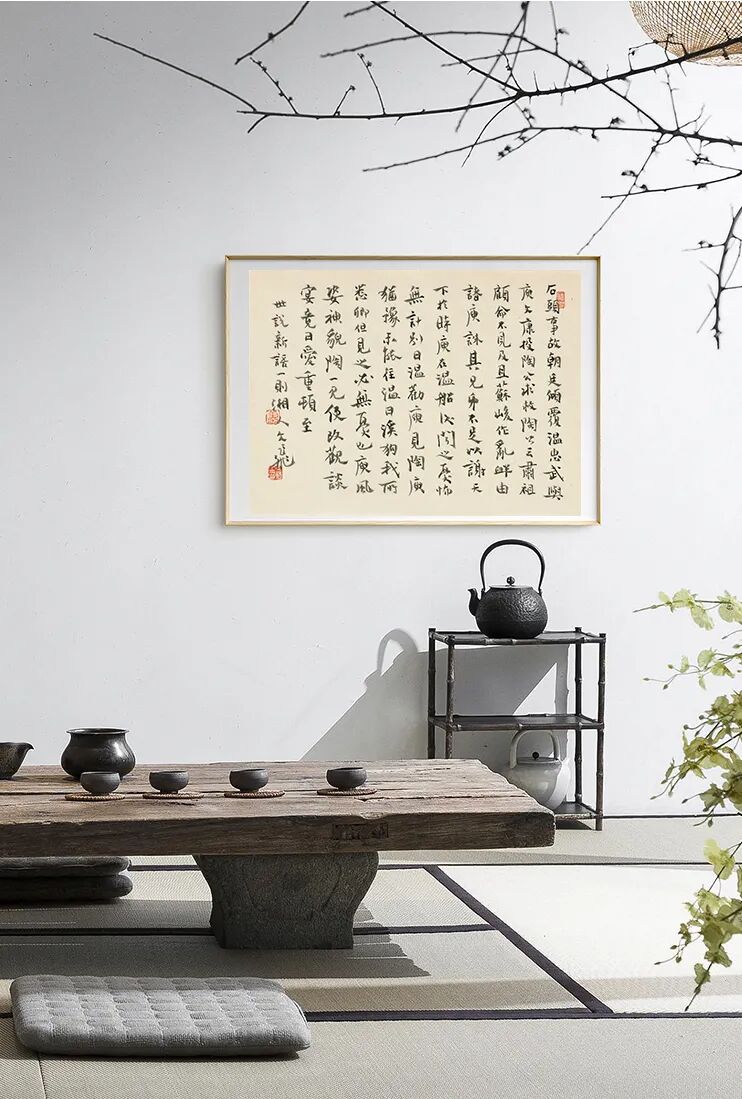 石頭事故朝廷傾覆温忠武與
庾文康投陶公求救陶公云肅祖
顧命不見及且蘇峻作亂衅由
諸庾誅其兄弟不足以謝天
下於時庾在温船後聞之憂怖
無計別日温勸庾見陶庾
猶豫未能往温曰溪狗我所
悉卿但見之必無憂也庾風
姿神貌陶一見便改觀談
宴竟日愛重頓至
世說新語一則湘人文飛